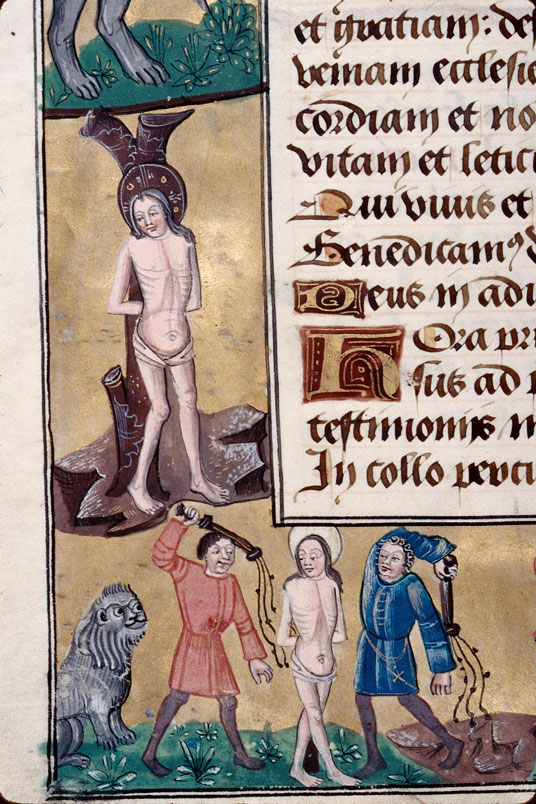 et gratiam: de
veniam ecclesie
cordiam et
vitam et letici
Qui vivis et
Benedicam⁹
Deus in adi
Hora pri
sus ad
testimoniis
In collo percu